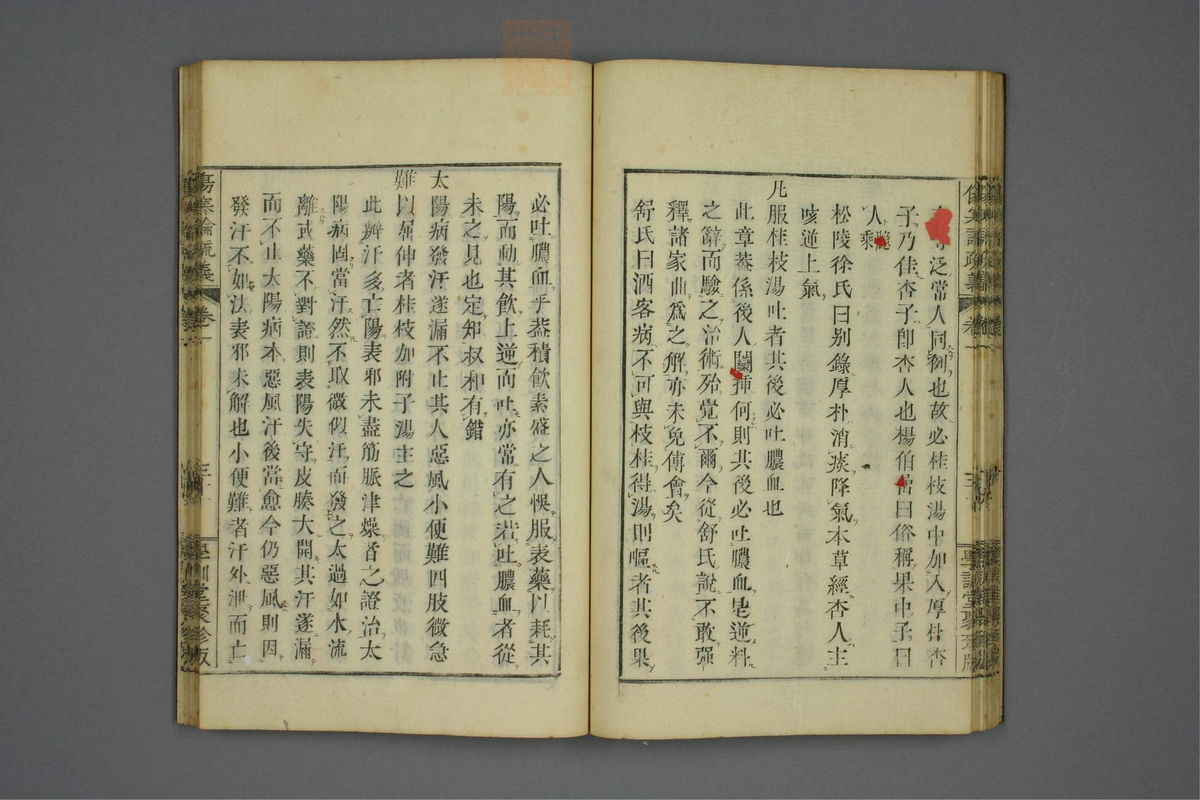 泛常人同例也故必桂枝湯中加入厚朴杏
子乃佳杏子卽杏人也楊伯嵒曰俗稱果中子曰
人乘
松陵徐氏曰別錄厚朴消痰降氣本草經杏人主
咳逆上氣
凡服桂枝湯吐者其後必吐膿血也
此章蓋係後人闌揷何則其後必吐膿血是逆料
之辭而驗之治術殆覺不爾今從舒氏說不敢强
釋諸家曲爲之解亦未免傳會矣
舒氏曰酒客病不可與枝桂得湯則嘔者其後果
必吐膿血乎蓋積飮素盛之人悞服表藥以耗其
陽而動其飮上逆而吐亦常有之若吐膿血者從
未之見也定知叔和有錯
太陽病發汗遂漏不止其人惡風小便難四肢微急
難以屈伸者桂枝加附子湯主之
此辨汗多亡陽表邪未盡筋脈津燥者之證治太
陽病固當汗然不取微似汗而發之太過如水流
離或藥不對證則表陽失守皮腠大開其汗遂漏
而不止太陽病本惡風汗後當愈今仍惡風則因
發汗不如法表邪未解也小便難者汗外泄而亡
傷寒論疏義
卷一
學訓堂聚珍版